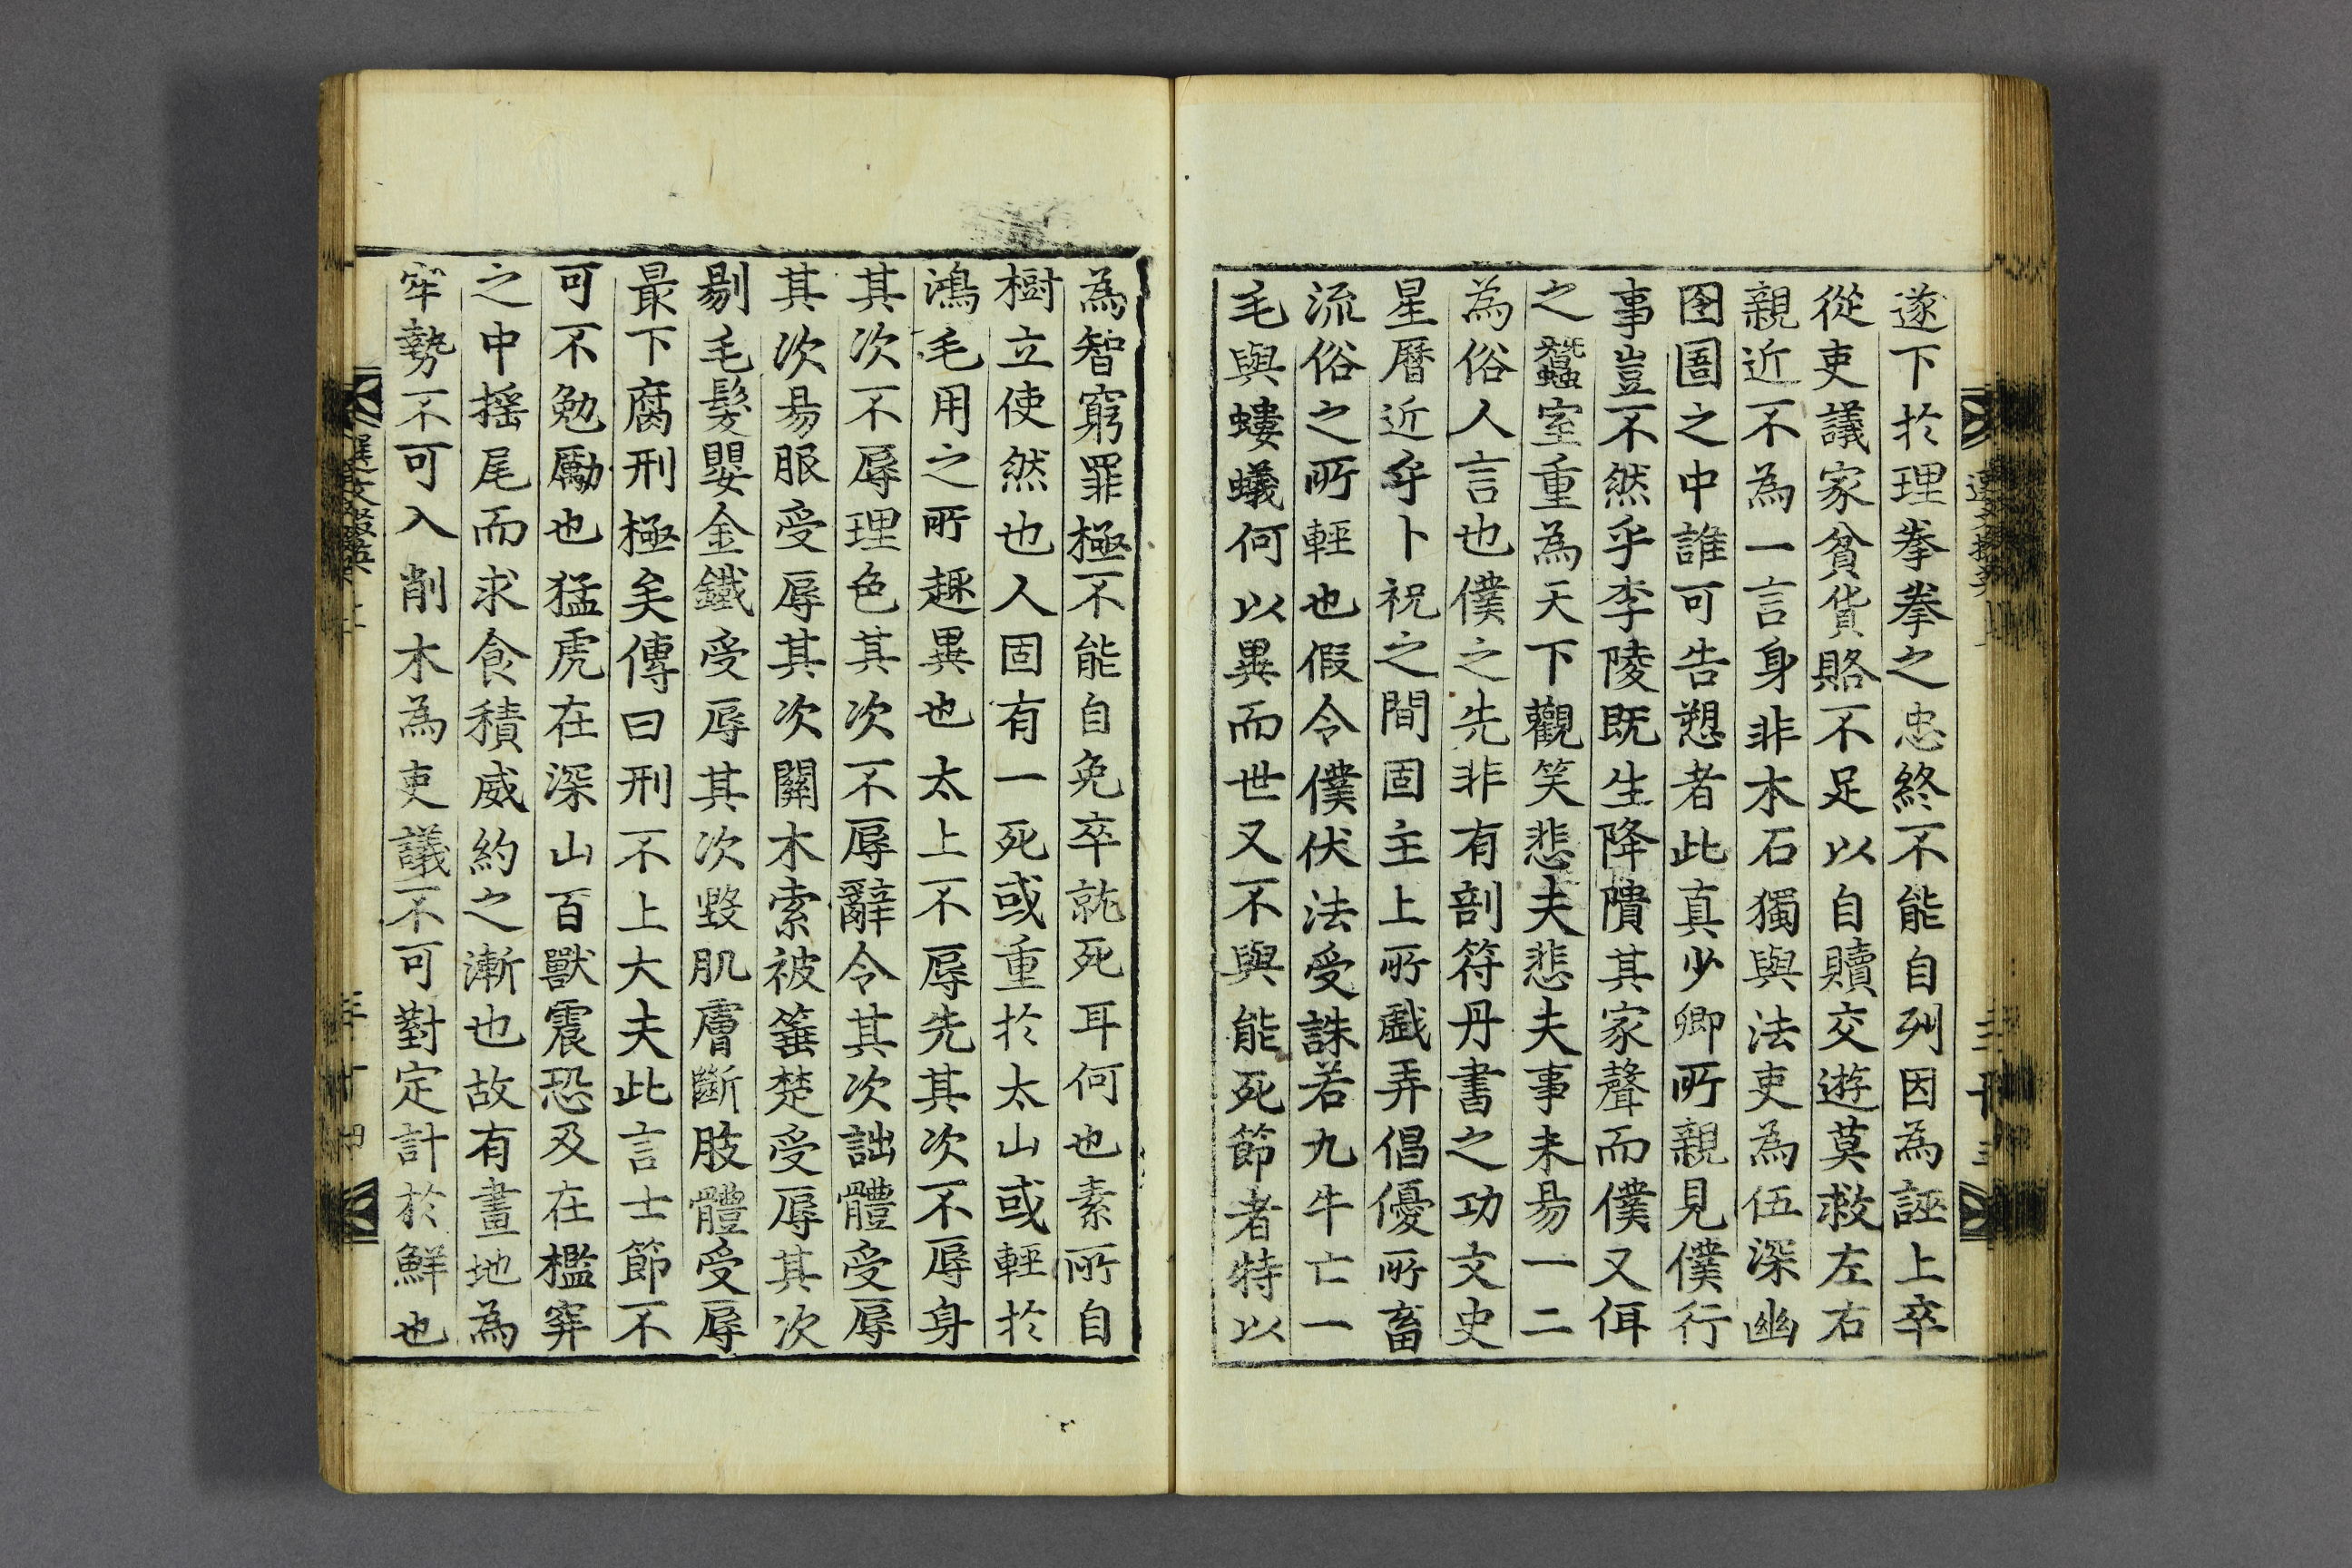 遂下於理拳拳之忠終不能自列因為誣上卒
從吏議家貧貨賂不足以自贖交遊莫救左右
親近不為一言身非木石獨與法吏為伍深幽
囹圄之中誰可告愬者此真少卿所親見僕行
事豈不然乎李陵既生降隤其家聲而僕又佴
之蠶室重為天下觀笑悲夫悲夫事未易一二
為俗人言也僕之先非有剖符丹書之功文史
星曆近乎卜祝之間固主上所戲弄倡優所畜
流俗之所輕也假令僕伏法受誅若九牛亡一
毛與螻蟻何以異而世又不與能死節者特以
為智窮罪極不能自免卒就死耳何也素所自
樹立使然也人固有一死或重於太山或輕於
鴻毛用之所趣異也太上不辱先其次不辱身
其次不辱理色其次不辱辭令其次詘體受辱
其次易服受辱其次關木索被箠楚受辱其次
剔毛髮嬰金鐵受辱其次毀肌膚斷肢體受辱
最下腐刑極矣傳曰刑不上大夫此言士節不
可不勉勵也猛虎在深山百獸震恐及在檻穽
之中搖尾而求食積威約之漸也故有畫地為
牢勢不可入削木為吏議不可對定計於鮮也